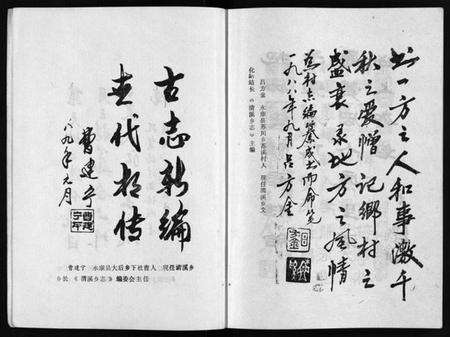 书一方之人和事激千
秋之爱憎记鄉村之
盛衰录地方之风情
村志编纂成书而命笔
一九八八年九月吕方金
吕方金 永康县苏川乡苏溪村人 现任清溪乡文
化站站长《清溪乡志》主编
古志新编
世代相传
曹建宁
八九年元月
曹建宁 永康县大后乡下社曹人 现任清溪乡
乡长《清溪乡志》编委会主任